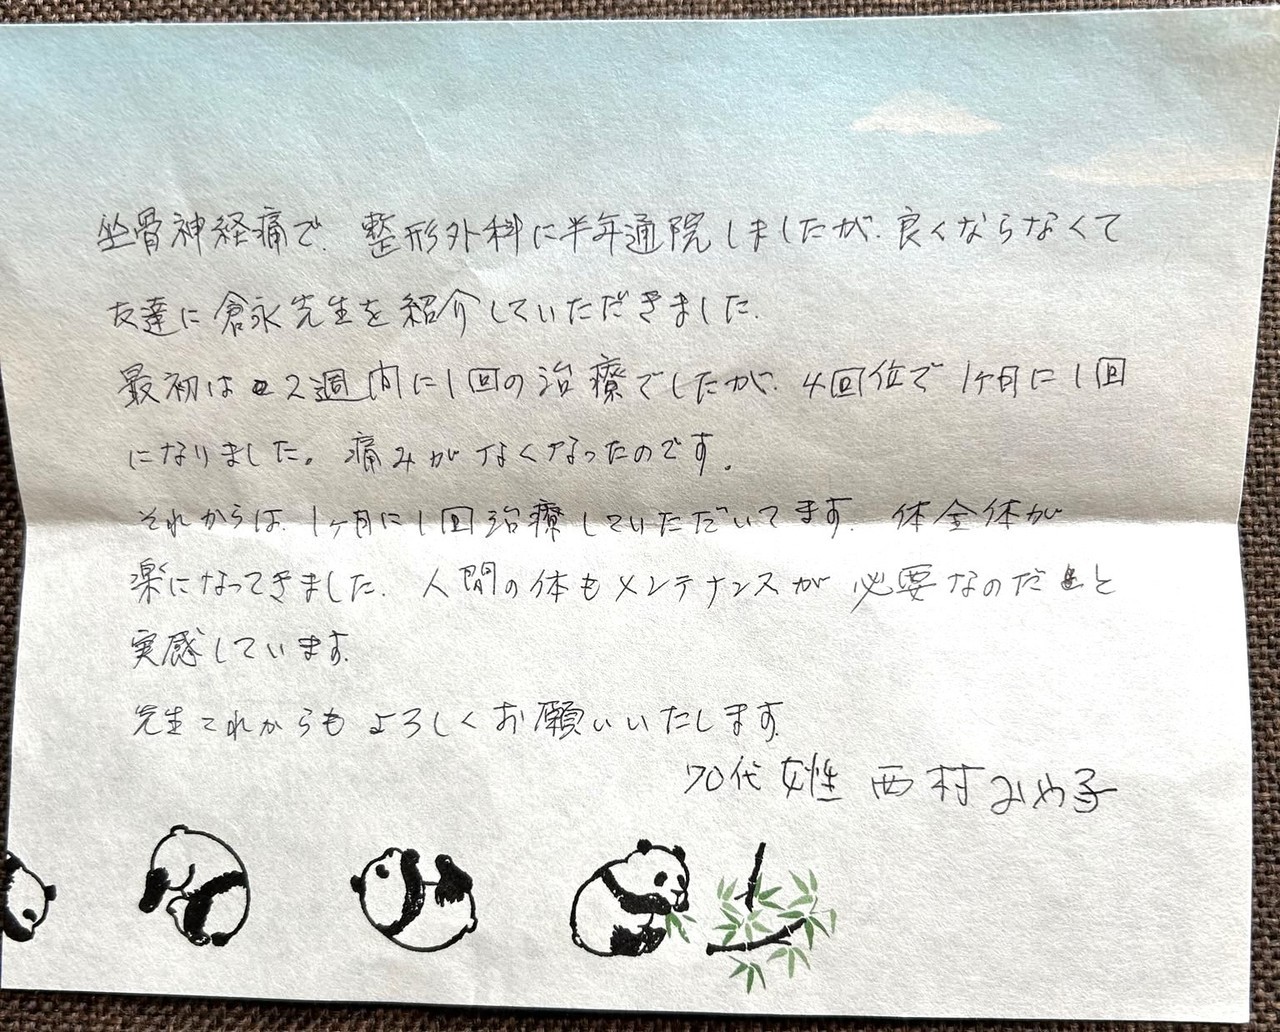 坐骨神経痛で、整形外科に半年通院しましたが、良くならなくて
友達に倉永先生を紹介していただきました。
最初は2週内に1回の治療でしたが、4回位で1ヶ月に1回
になりました。痛みがなくなったのです。
それからは、1ヶ月に1回治療していただいてます。体全体が
楽になってきました。人間の体もメンテナンスが必要なのだと
実感しています。
先生これからもよろしくお願いいたします。
70代女性 西村みや子